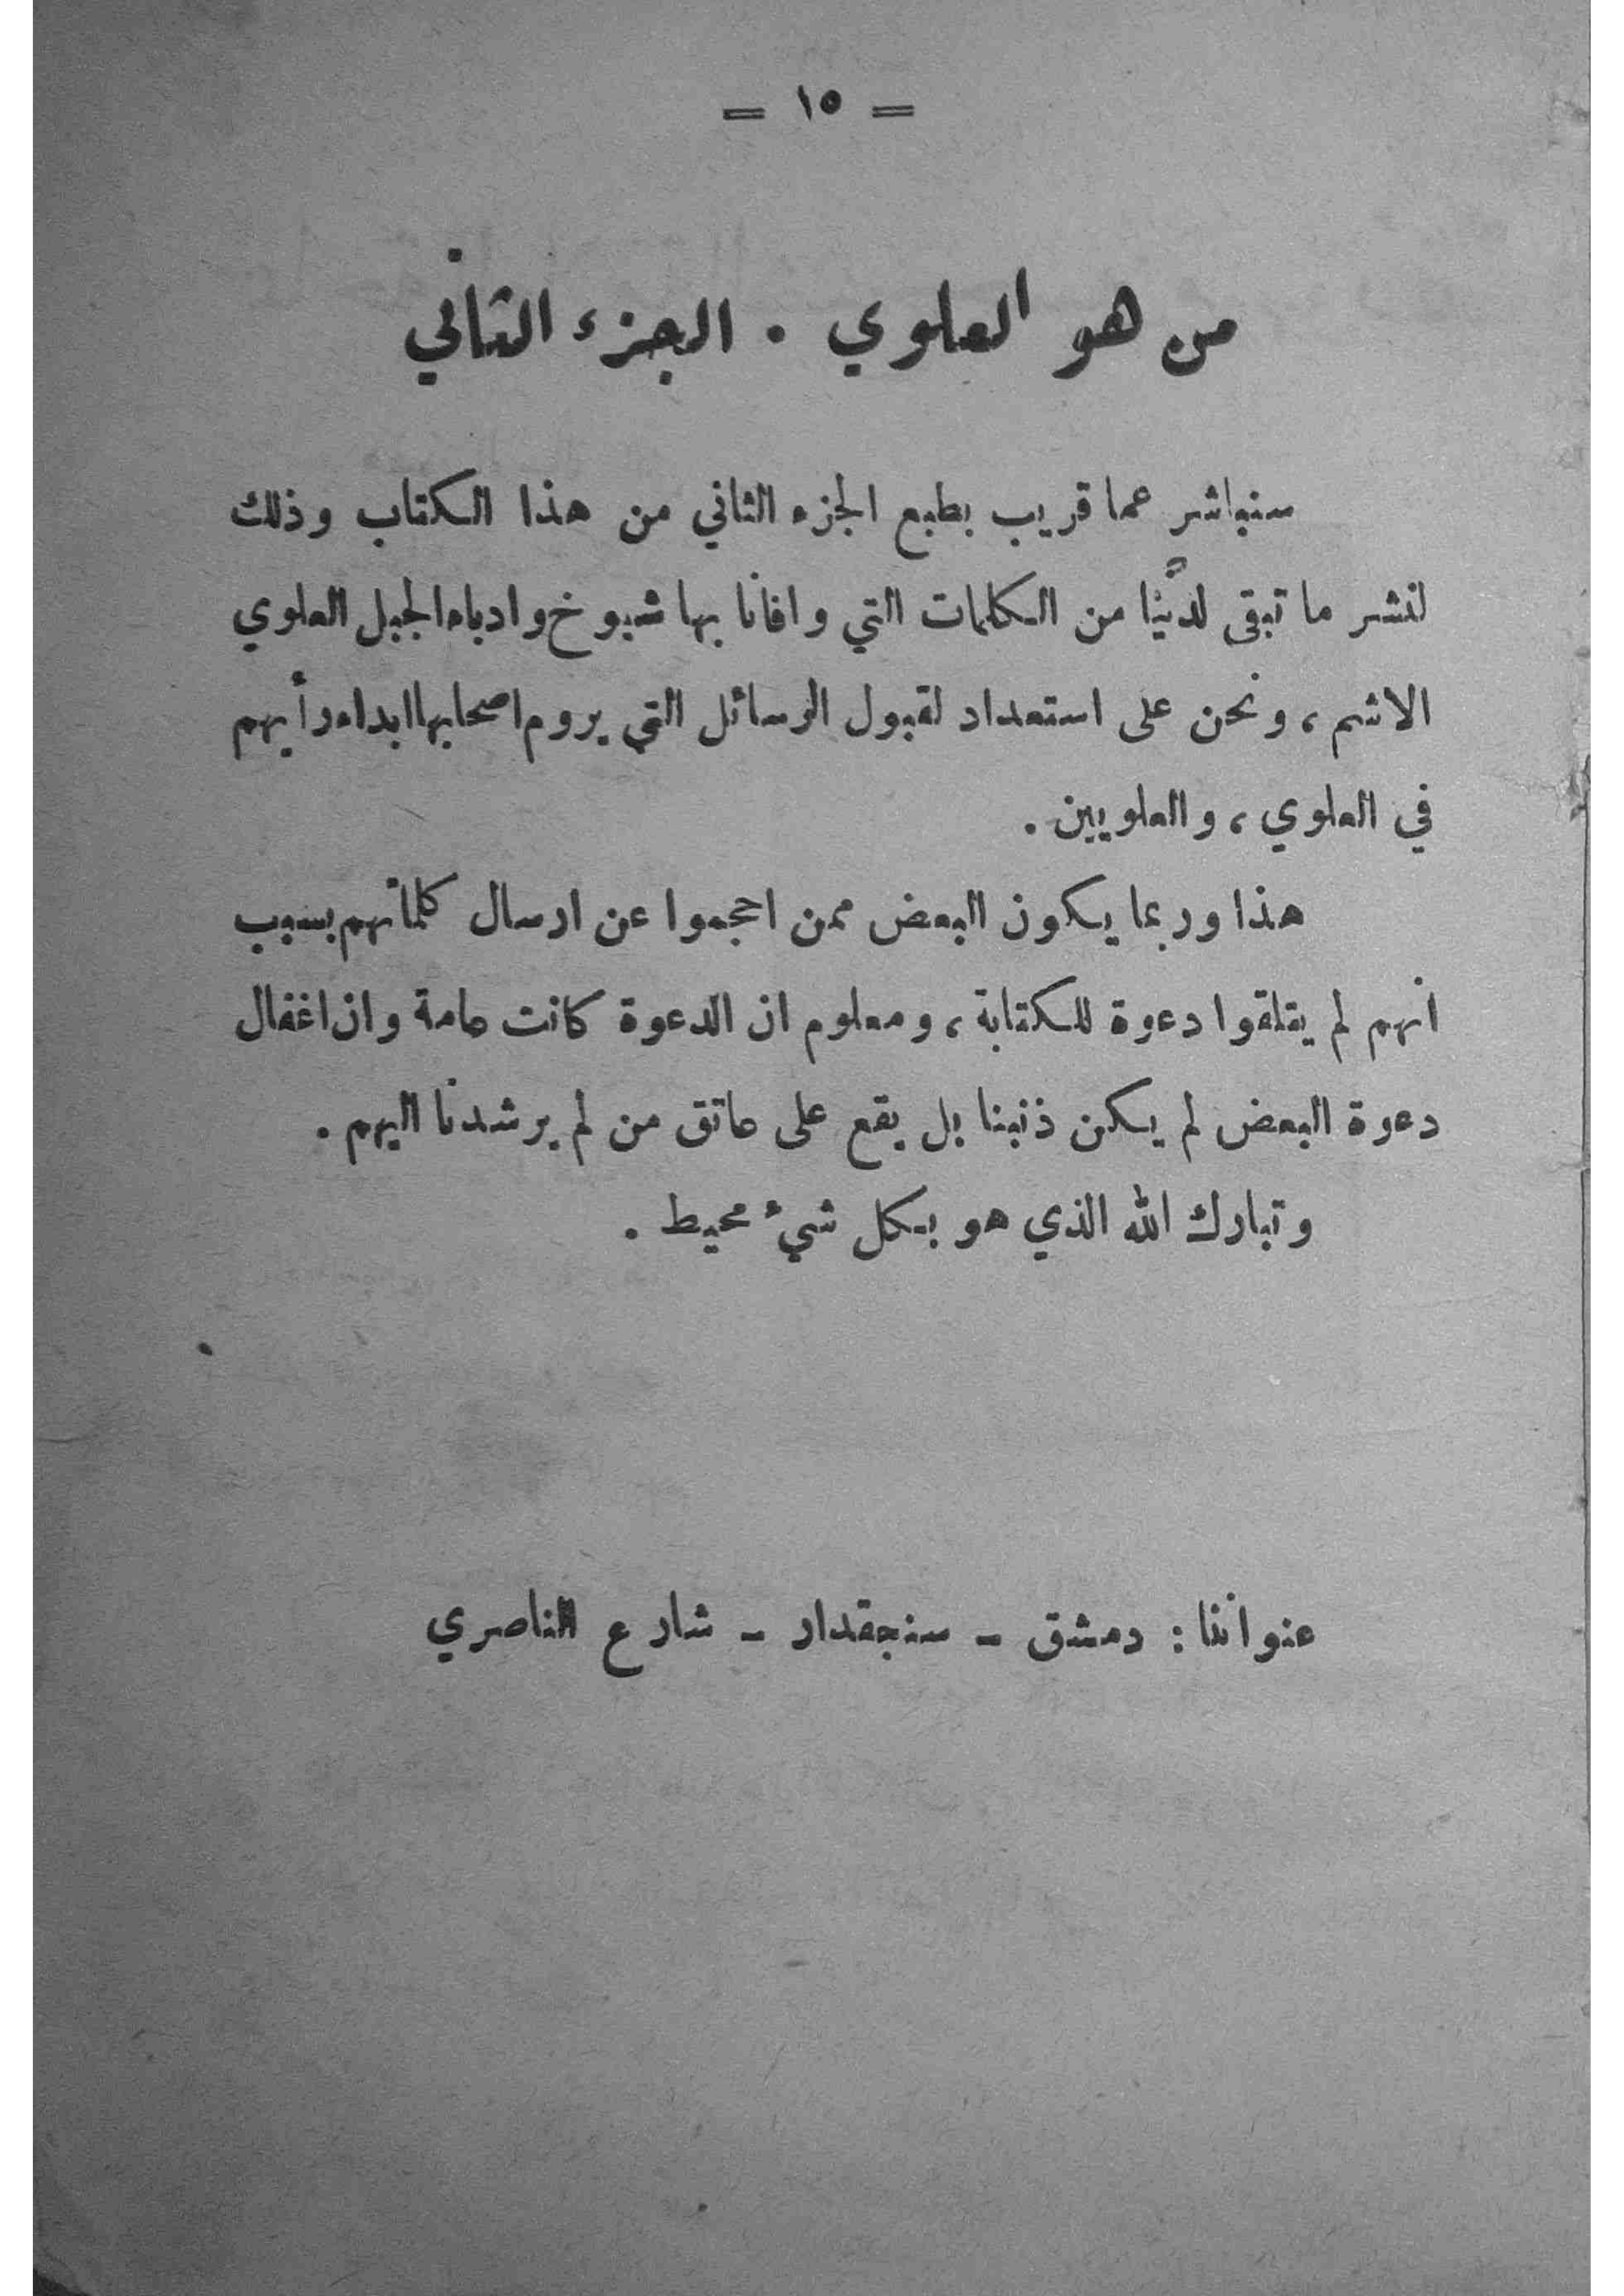 = ١٥ =
من هو العلوي . الجزء الثاني
سنباشر عما قريب بطبع الجزء الثاني من هذا الكتاب وذلك
لنشر ما تبقى لدينا من الكلمات التي وافانا بها شيوخ وادباء الجبل العلوي
الاشم ، ونحن على استعداد لقبول الرسائل التي يروم اصحابها ابداء رأيهم
في العلوي ، والعلويين .
هذا وربما يكون البعض ممن احجموا عن ارسال كلماتهم بسبب
انهم لم يتلقوا دعوة للكتابة ، ومعلوم ان الدعوة كانت عامة وان اغفال
دعوة البعض لم يكن ذنبنا بل يقع على عاتق من لم يرشدنا اليهم .
وتبارك الله الذي هو بكل شيء محيط .
عنواننا : دمشق - سنجقدار - شارع الناصري